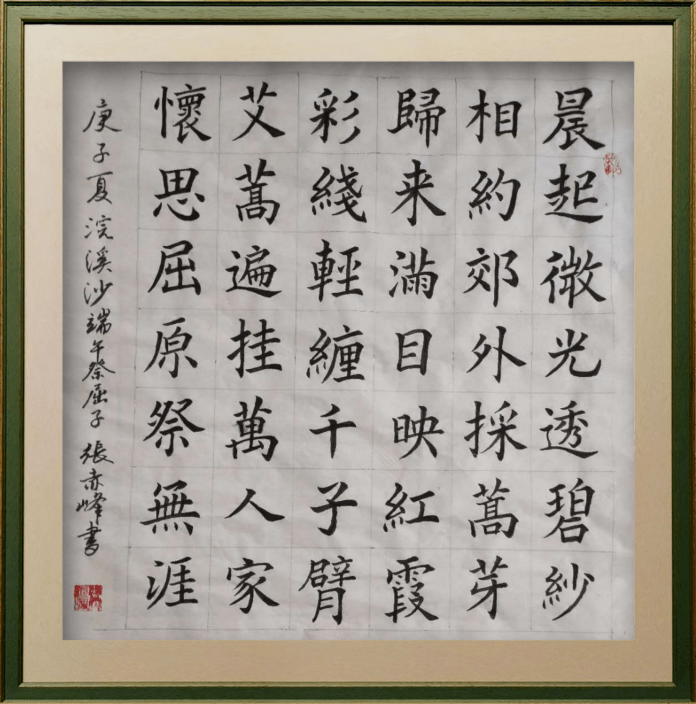 晨起微光透碧紗
相約郊外採蒿芽
歸来滿目映紅霞
彩綫輕纏千子臂
艾蒿遍挂萬人家
懷思屈原祭無涯
庚子夏浣溪沙端午祭屈子 張赤峰書